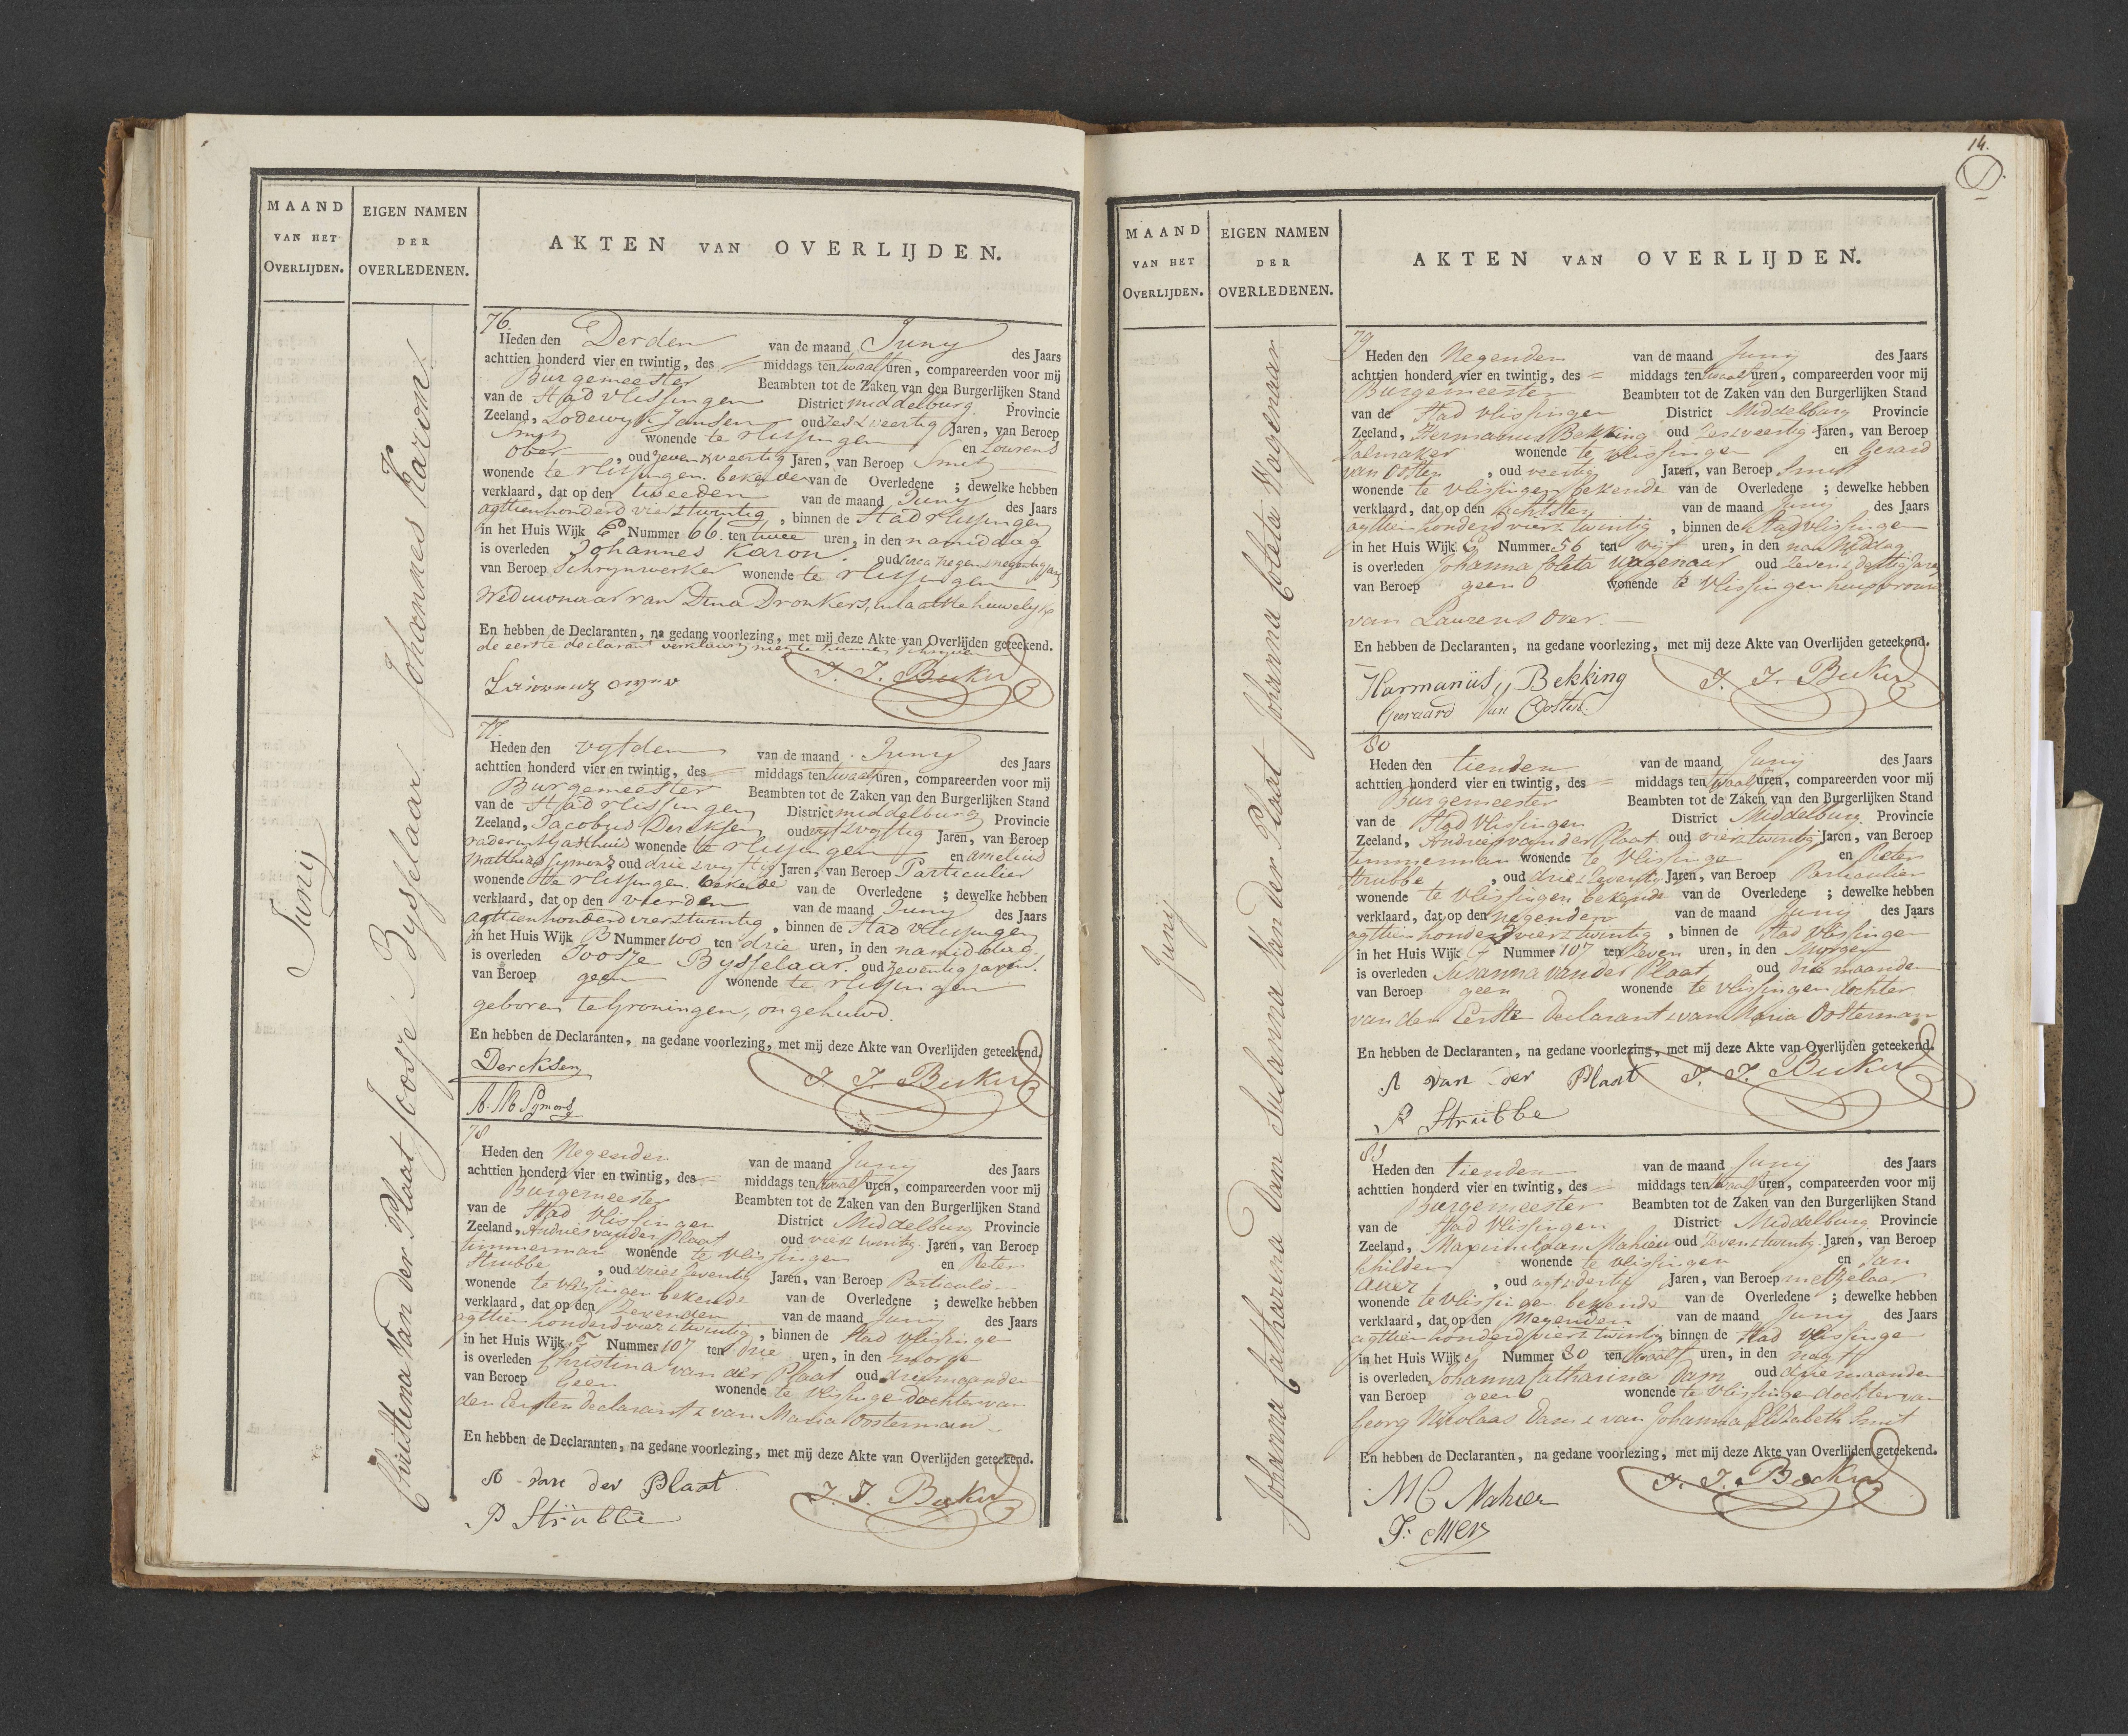 MAAND
VAN HET
OVERLIJDEN.
EIGEN NAMEN
DER
OVERLEDENEN.
AKTEN VAN OVERLIJDEN.
Junij
Johannes Karon.
Joosje Bysselaar.
Christina Van der Plaat
76.
Heden den Derden van de maand Juny des Jaars
achttien honderd vier en twintig, des = middags ten twaalf uren, compareerden voor mij
Burgemeester Beambten tot de Zaken van den Burgerlijken Stand
van de Stad Vlissingen District middelburg Provincie
Zeeland, Lodewyk Jansen oud zes & veertig Jaren, van Beroep
Smit wonende te vlissingen en Lourens
Over, oud zeven & veertig Jaren, van Beroep Smit
wonende te vlissingen bekende van de Overledene ; dewelke hebben
verklaard, dat op den tweeden van de maand Juny des Jaars
agttienhonderd vier & twintig, binnen de Stad vlissingen
in het Huis Wijk Nummer 66. ten twee uren, in den namiddag
is overleden Johannes Karon oud circa negen & negentig jaren
van Beroep Schrynwerker wonende te vlissingen
Weduwnaar van Dina Dronkers, in laatste huwelijk
En hebben de Declaranten, na gedane voorlezing, met mij deze Akte van Overlijden geteekend.
de eerste declarant verklaarde niet te kunnen schryven
J. J. Becker
77.
Heden den vyfden van de maand Juny des Jaars
achttien honderd vier en twintig, des = middags ten twaalf uren, compareerden voor mij
Burgemeester Beambten tot de Zaken van den Burgerlijken Stand
van de Stad vlissingen District middelburg Provincie
Zeeland, Jacobus Dercksen oud vyf & vyftig Jaren, van Beroep
vader in 't gasthuis wonende te vlissingen en Amelius
Matthias Symons oud drie & vyftig Jaren, van Beroep Particulier
wonende te vlissingen. bekende van de Overledene ; dewelke hebben
verklaard, dat op den vierden van de maand Juny des Jaars
agttienhonderd vier & twintig, binnen de Stad vlissingen
in het Huis Wijk B Nummer 100 ten drie uren, in den namiddag
is overleden Joosje Bysselaar. oud zeventig jaren.
van Beroep geen wonende te vlissingen
geboren te Groningen, ongehuwd.
En hebben de Declaranten, na gedane voorlezing, met mij deze Akte van Overlijden geteekend.
Dercksen J. J. Becker
A. M. Symons
78
Heden den Negenden van de maand Juny des Jaars
achttien honderd vier en twintig, des = middags ten twaalf uren, compareerden voor mij
Burgemeester Beambten tot de Zaken van den Burgerlijken Stand
van de Stad Vlissingen District Middelburg Provincie
Zeeland, Andries van der Plaat oud vier & twintig Jaren, van Beroep
timmerman wonende te Vlissingen en Pieter
Strubbe, oud drie & zeventig Jaren, van Beroep Particulier
wonende te Vlissingen bekende van de Overledene ; dewelke hebben
verklaard, dat op den Zevenden van de maand Juny des Jaars
agttien honderd vier & twintig, binnen de Stad Vlissinge
in het Huis Wijk F Nummer 107 ten drie uren, in den morge
is overleden Christina van der Plaat oud drie maanden
van Beroep Geen wonende te Vlissinge dochter van
den Eersten Declarant & van Maria Oosterman
En hebben de Declaranten, na gedane voorlezing, met mij deze Akte van Overlijden geteekend.
A van der Plaat J. J. Becker
P Strubbe
14.
MAAND
VAN HET
OVERLIJDEN.
EIGEN NAMEN
DER
OVERLEDENEN.
AKTEN VAN OVERLIJDEN.
Junij
Johanna Coleta Wagenaar
Susanna Van der Plaat
Johanna Catharina Dam
79
Heden den Negenden van de maand Juny des Jaars
achttien honderd vier en twintig, des = middags ten twaalf uren, compareerden voor mij
Burgemeester Beambten tot de Zaken van den Burgerlijken Stand
van de Stad Vlissingen District Middelburg Provincie
Zeeland, Hermanus Bekking oud zes & veertig Jaren, van Beroep
Zalmaker wonende te Vlissingen en Gerard
van Osten, oud veertig Jaren, van Beroep Smit
wonende te Vlissingen bekende van de Overledene ; dewelke hebben
verklaard, dat op den Achtsten van de maand Juny des Jaars
agttien honderd vier & twintig, binnen de Stad Vlissingen
in het Huis Wijk Nummer 56 ten vijf uren, in den na Middag
is overleden Johanna Coleta Wagenaar oud Zeven & dertig Jaren
van Beroep geen wonende te Vlissingen huisvrouw
van Laurens Over.
En hebben de Declaranten, na gedane voorlezing, met mij deze Akte van Overlijden geteekend.
Harmanüs Bekking J. J. Becker
Geeraard Van Oosten
80
Heden den tienden van de maand Juny des Jaars
achttien honderd vier en twintig, des = middags ten twaalf uren, compareerden voor mij
Burgemeester Beambten tot de Zaken van den Burgerlijken Stand
van de Stad Vlissingen District Middelburg. Provincie
Zeeland, Andries van der Plaat oud vier & twintig Jaren, van Beroep
timmerman wonende te Vlissinge en Pieter
Strubbe, oud drie & zeventig Jaren, van Beroep Particulier
wonende te Vlissingen bekende van de Overledene ; dewelke hebben
verklaard, dat op den negenden van de maand Junij des Jaars
agttien honderd vier & twintig, binnen de Stad Vlissingen
in het Huis Wijk F Nummer 107 ten Zeven uren, in den Morgen
is overleden Susanna van der Plaat oud drie maanden
van Beroep geen wonende te Vlissingen dochter
van den Eerste Declarant & van Maria Oosterman
En hebben de Declaranten, na gedane voorlezing, met mij deze Akte van Overlijden geteekend.
A van der Plaat J. J. Becker
P Strübbe
81
Heden den tienden van de maand Junij des Jaars
achttien honderd vier en twintig, des = middags ten twaalf uren, compareerden voor mij
Burgemeester Beambten tot de Zaken van den Burgerlijken Stand
van de Stad Vlissingen District Middelburg Provincie
Zeeland, Maximiliaan Mahieu oud Zeven & twintig Jaren, van Beroep
Schilder wonende te Vlissingen en Jan
, oud agt & dertig Jaren, van Beroep metzelaar
wonende te Vlissingen bekende van de Overledene ; dewelke hebben
verklaard, dat op den Negenden van de maand Juny des Jaars
agttien honderd vier & twintig binnen de Stad Vlissinge
in het Huis Wijk Nummer 30 ten twaalf uren, in den nagt
is overleden Johanna Catharina Dam oud drie maanden
van Beroep geen wonende te Vlissinge dochter van
Georg Nikolaas Dam & van Johanna Elizabeth Smit
En hebben de Declaranten, na gedane voorlezing, met mij deze Akte van Overlijden geteekend.
M C Mahieu J. J. Becker